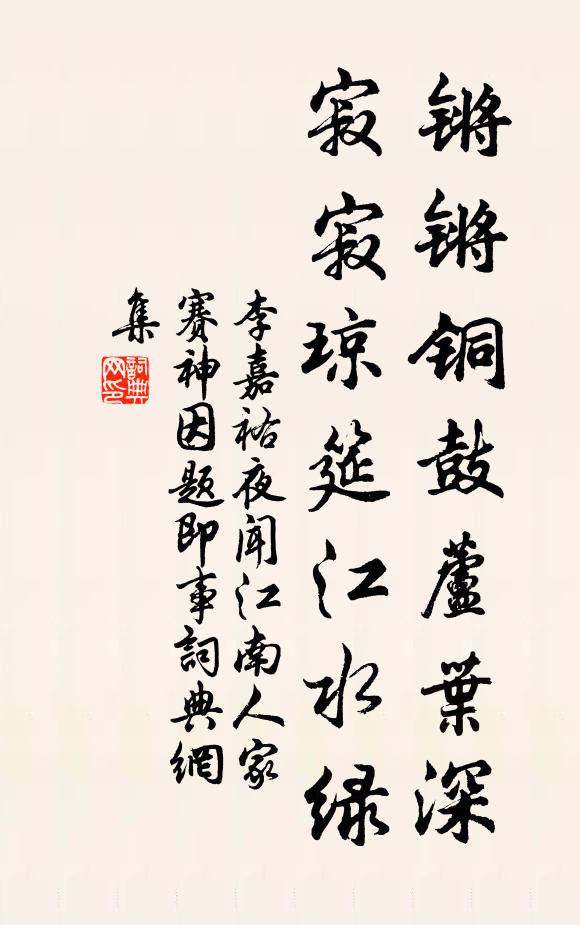 锵锵铜鼓蘆葉深
寂寂琼筵江水绿
李嘉祐夜闻江南人家
赛神因题即事詞典網
集
詞典
网印